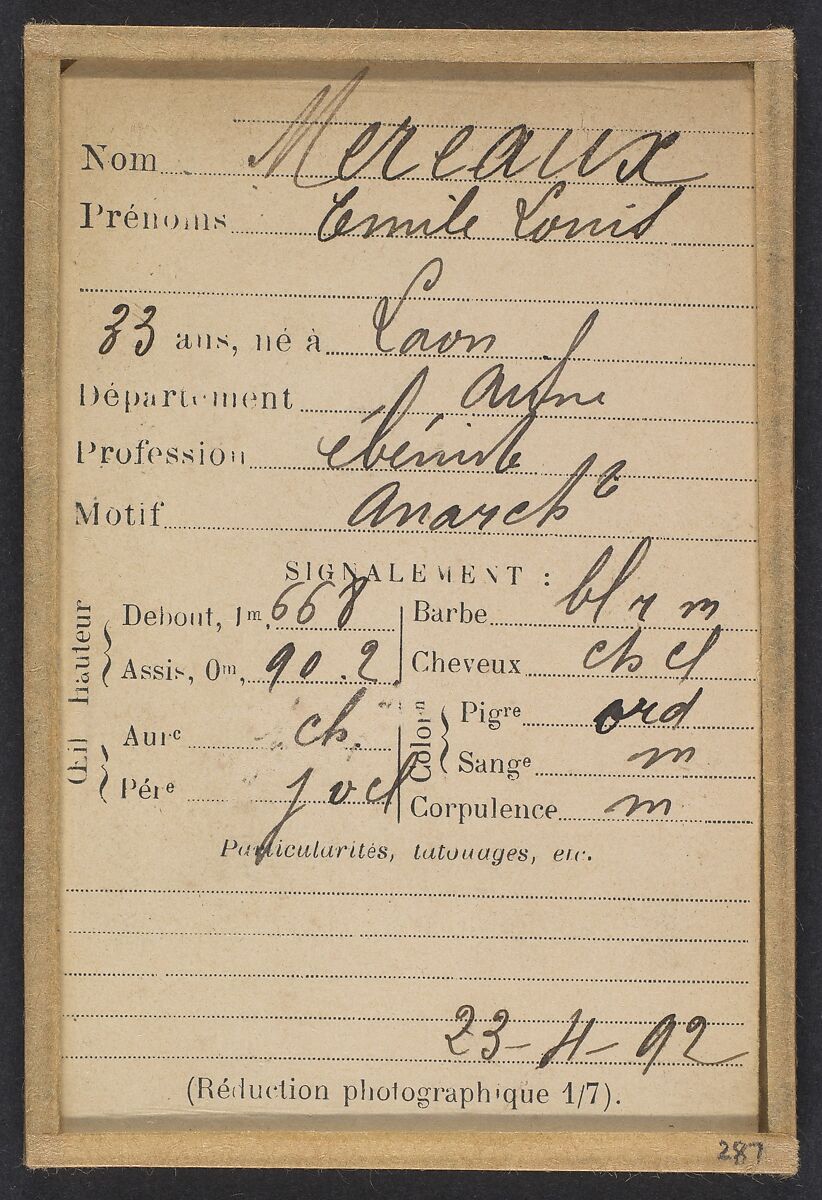 Nom Mereaux
Prénoms Emile Louis
33 ans, né à Laon
Département Aisne
Profession ébéniste
Motif Anarch te
SIGNALEMENT :
Œil hauteur
Debout, 1m, 668
Assis, 0m, 90.2
Aurc ch.
Pére j v cl
Barbe bl r m
Cheveux ch cl
Colorn
Pigre ord
Sange m
Corpulence m
Particularités, tatouages, etc.
23-4-92
(Réduction photographique 1/7).
287